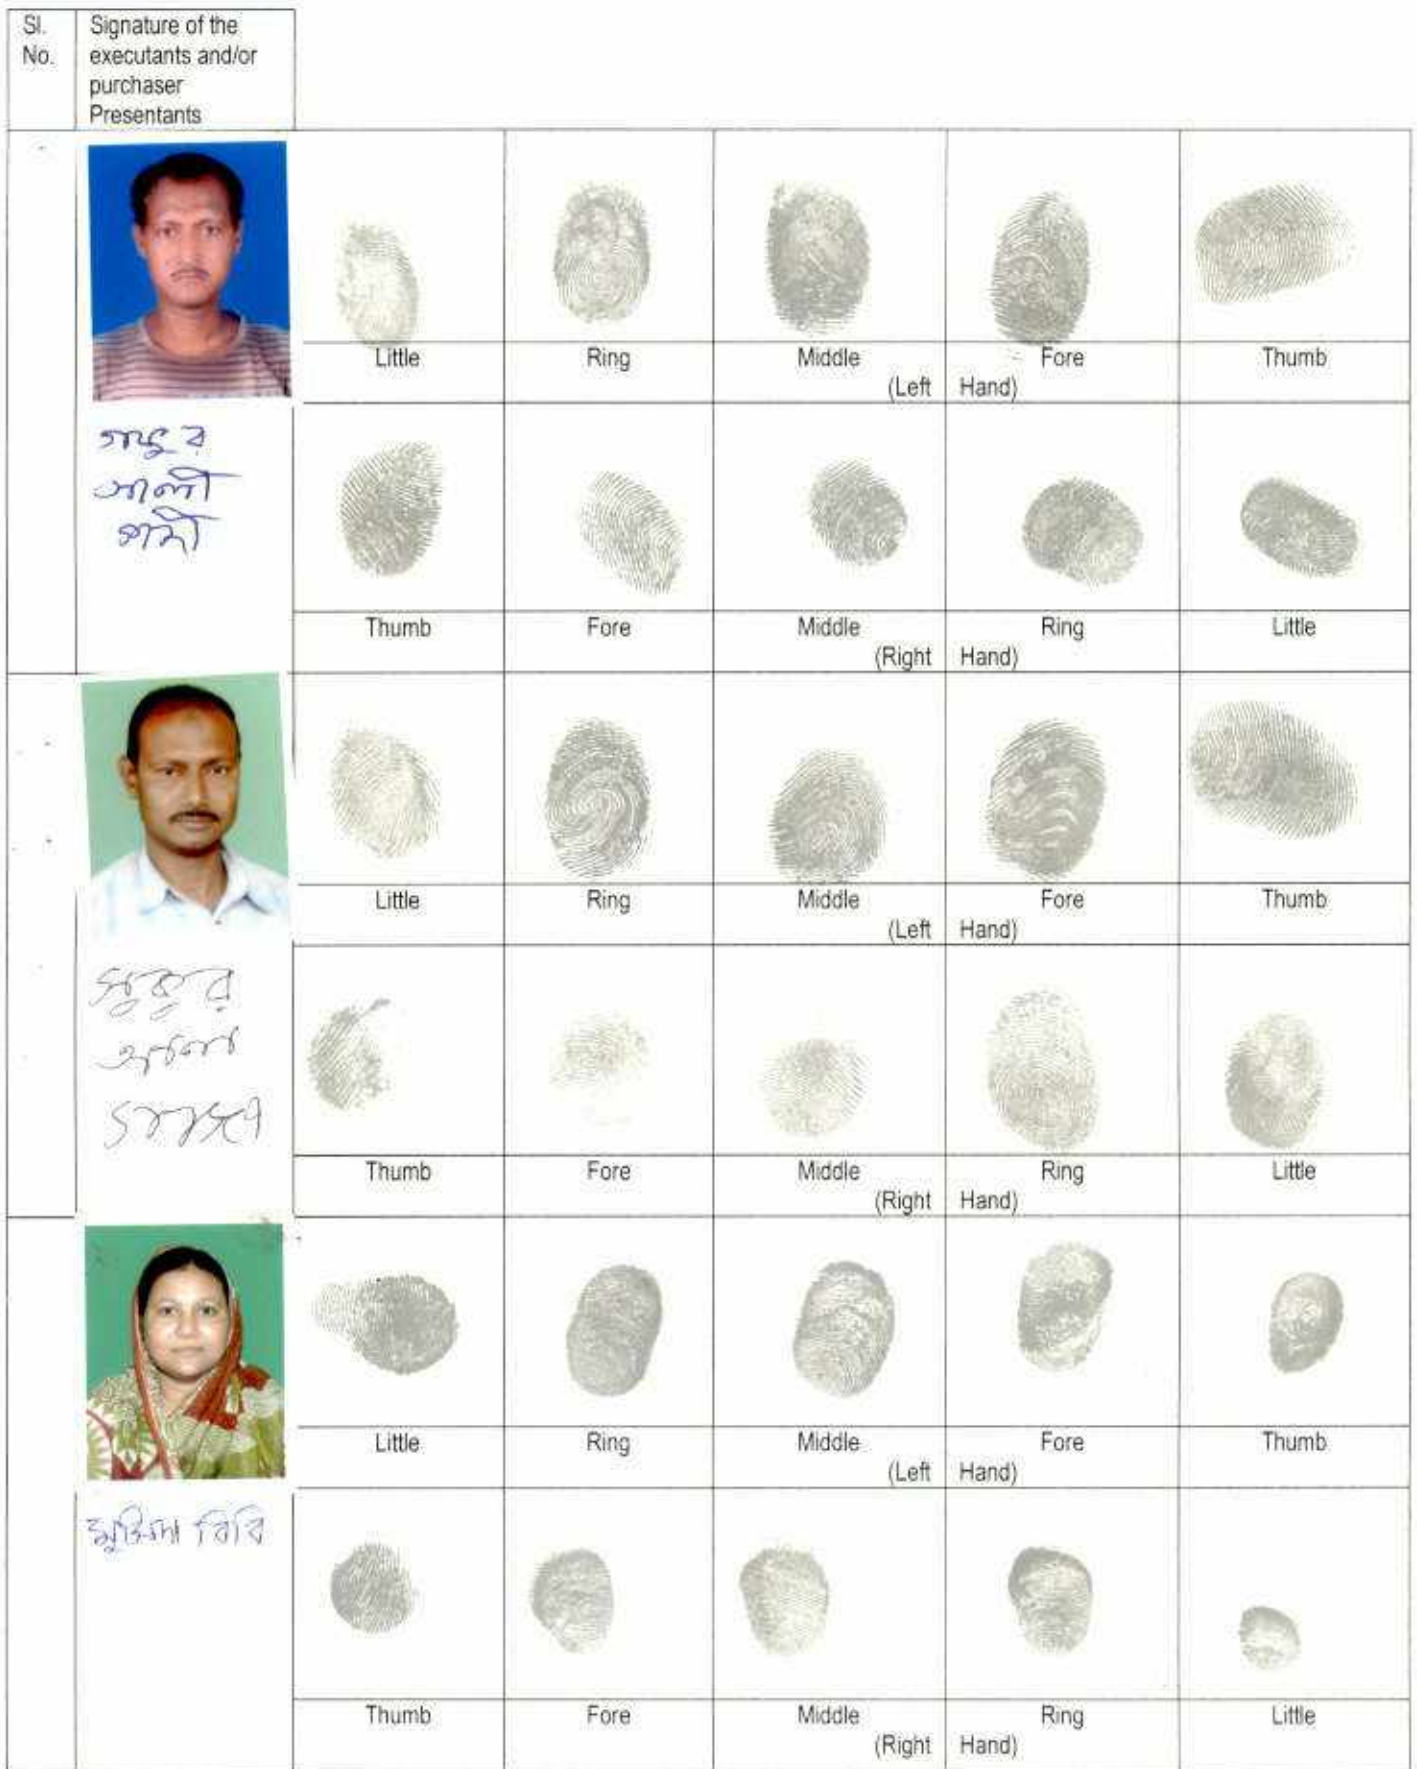 Sl.
No.
Signature of the
executants and/or
purchaser
Presentants
Little Ring Middle Fore Thumb
(Left Hand)
গফুর
আলী
Thumb Fore Middle Ring Little
(Right Hand)
Little Ring Middle Fore Thumb
(Left Hand)
সুকুর
আলী
Thumb Fore Middle Ring Little
(Right Hand)
Little Ring Middle Fore Thumb
(Left Hand)
বিবি
Thumb Fore Middle Ring Little
(Right Hand)